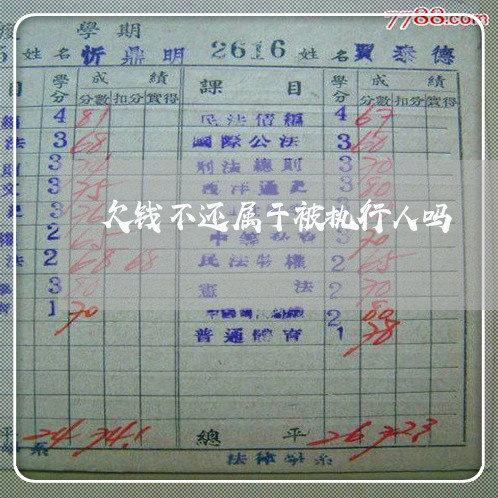 7788.com
學期
姓名 忻鼎明 2616 姓名 賈泰德
目 學分 成績 課目 學分 成績
分數 扣分 實得 分數 扣分 實得
4 81 民法債編 4 67
法 3 68 國際公法 3 60
3 刑法總則 3 70
3 75 西洋通史 3 80
欠钱不还属于被执行人吗
2 65 3 70
法 2 68 68 民法物權 2 65
3 80 憲法 2 70
1 70 2 80
普通體育 1 78
平 24 74.1 總平 26 72.3
系 法律學系